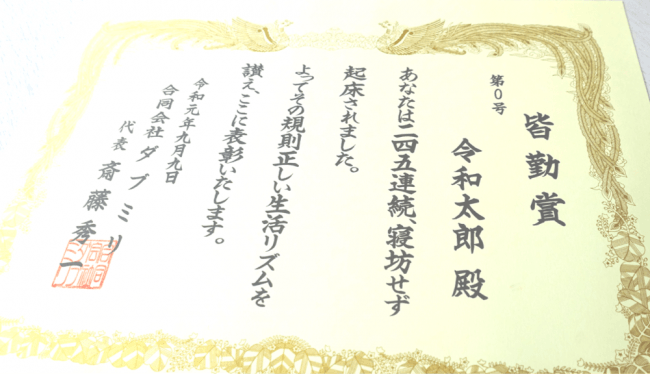 皆勤賞
第0号
令和太郎 殿
あなたは二四五連続、寝坊せず
起床されました。
よってその規則正しい生活リズムを
讃え、ここに表彰いたします。
令和元年九月九日
合同会社ダブミリ
代表 斎藤秀一